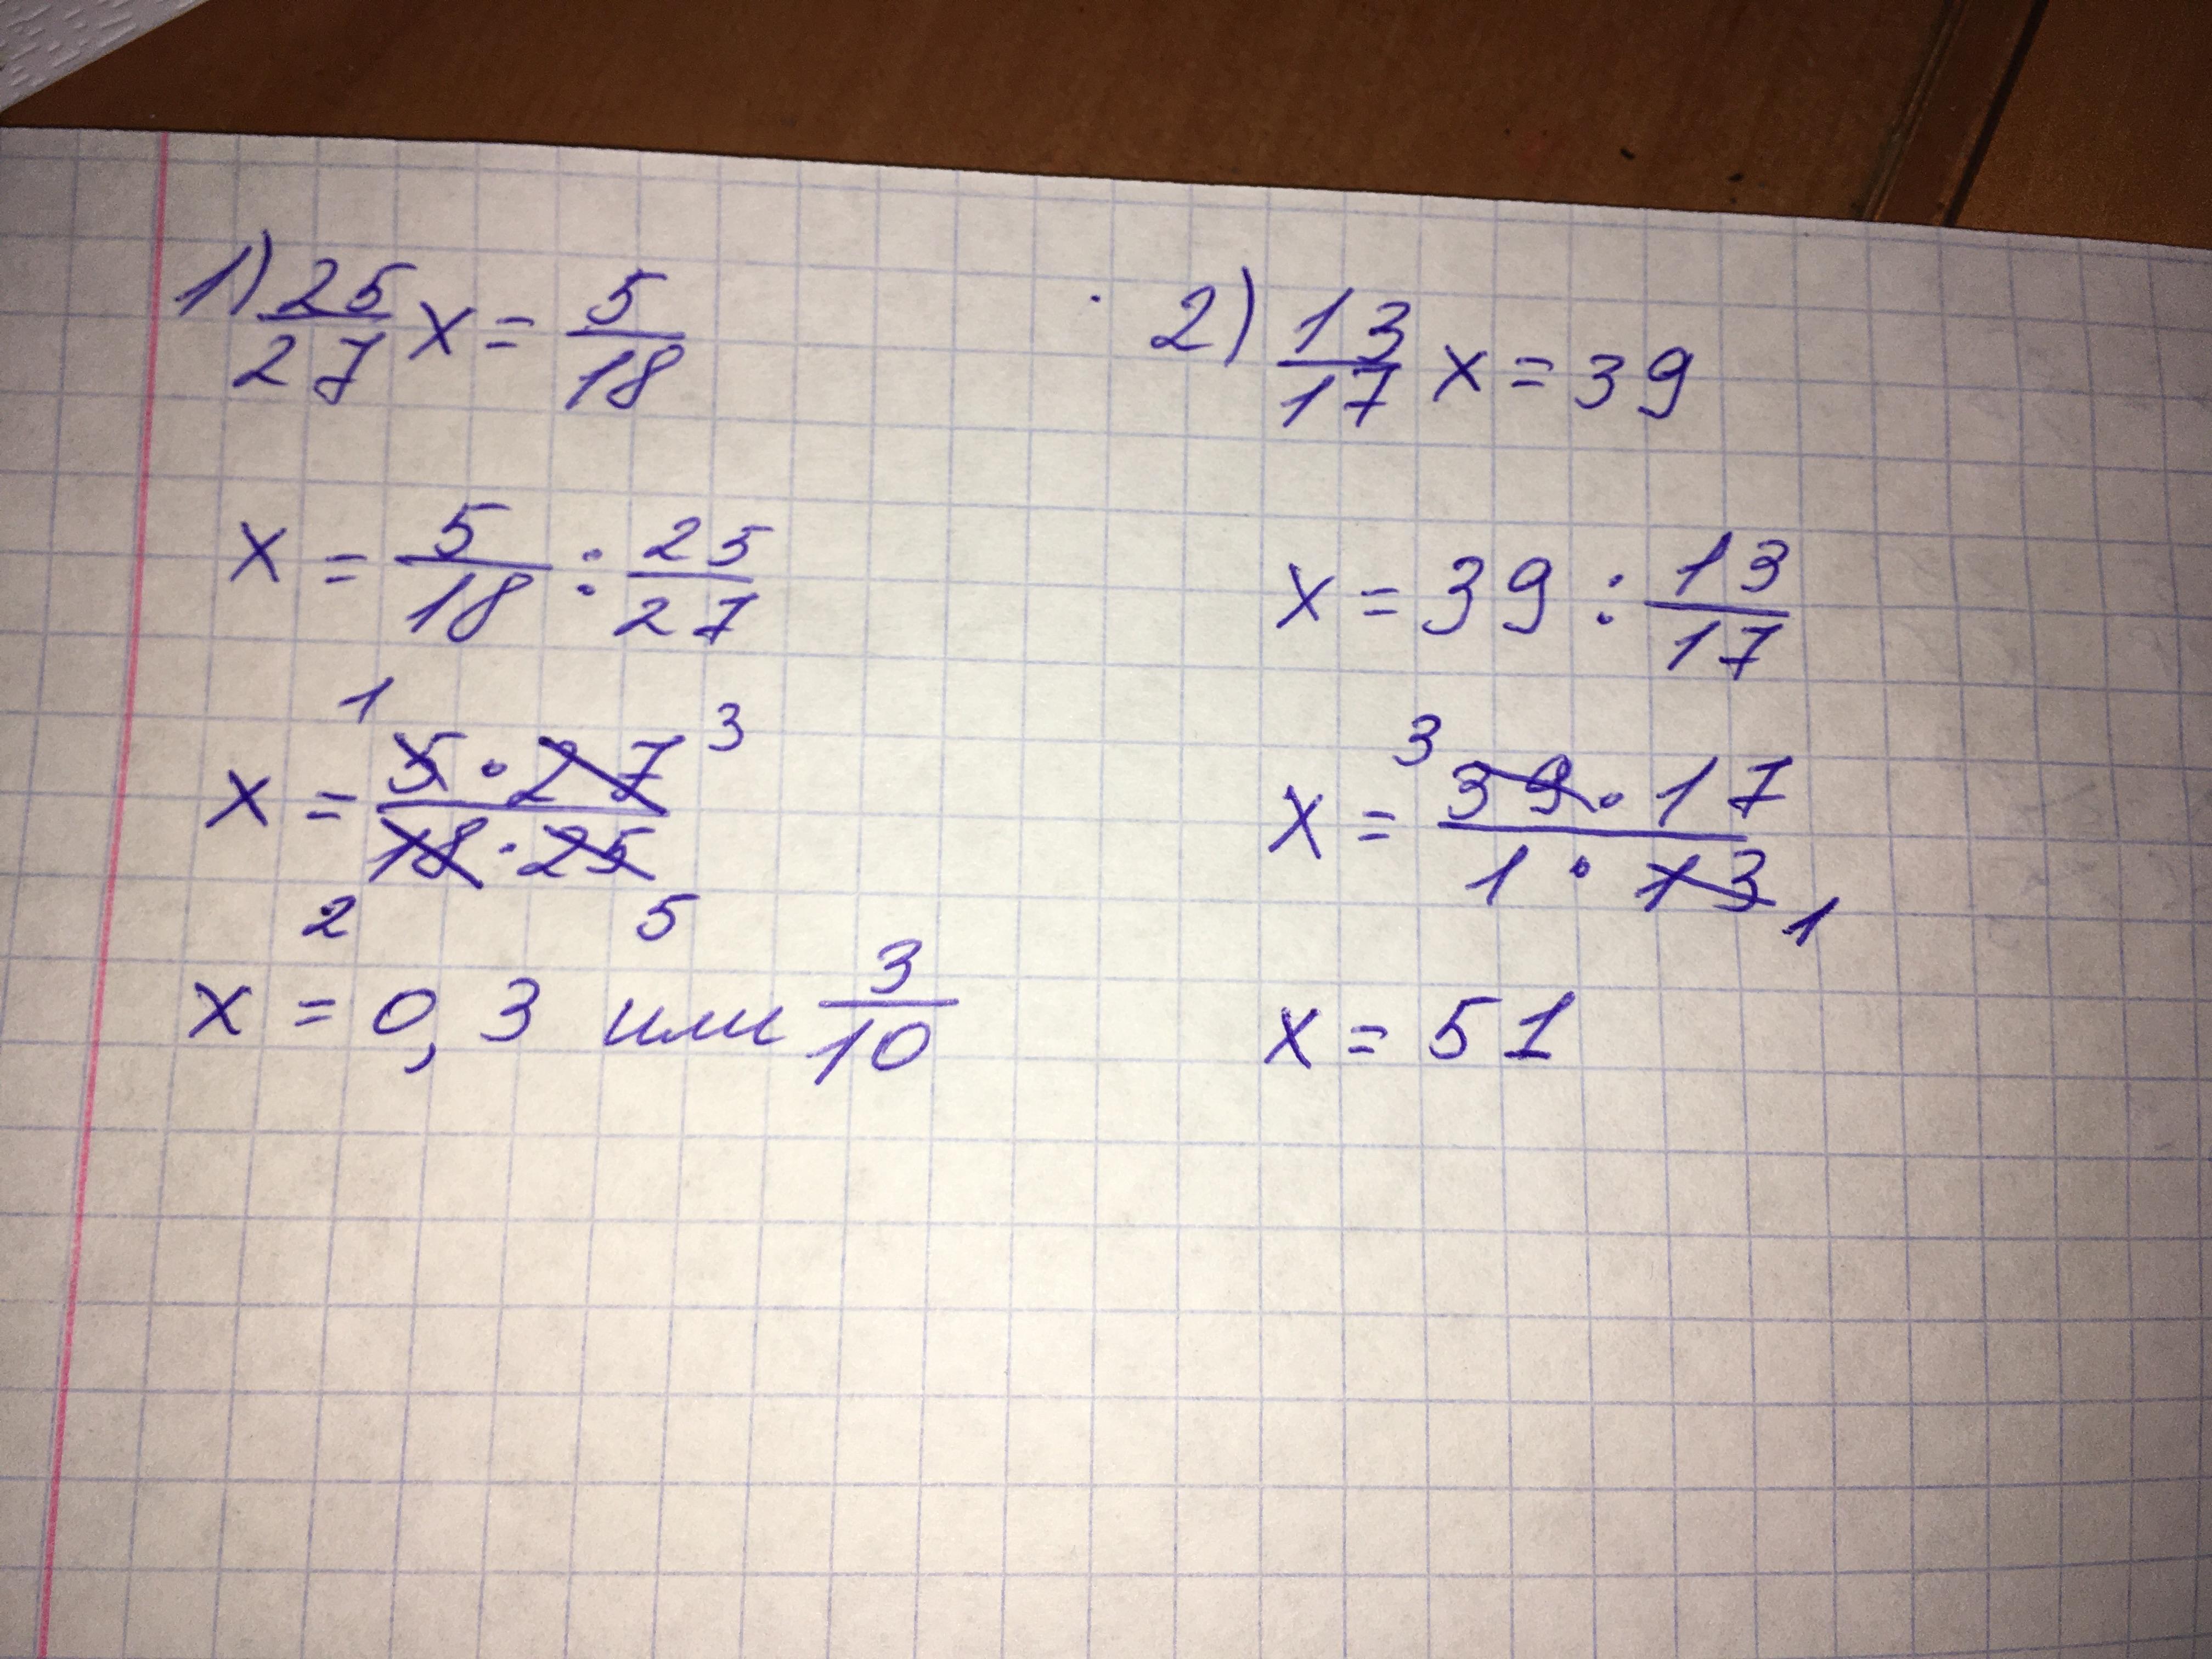 1) 25/27 x = 5/18
x = 5/18 : 25/27
x = 5 · 27 / 18 · 25
1 3
2 5
x = 0,3 или 3/10
2) 13/17 x = 39
x = 39 : 13/17
x = 39 · 17 / 1 · 13
3
1
x = 51